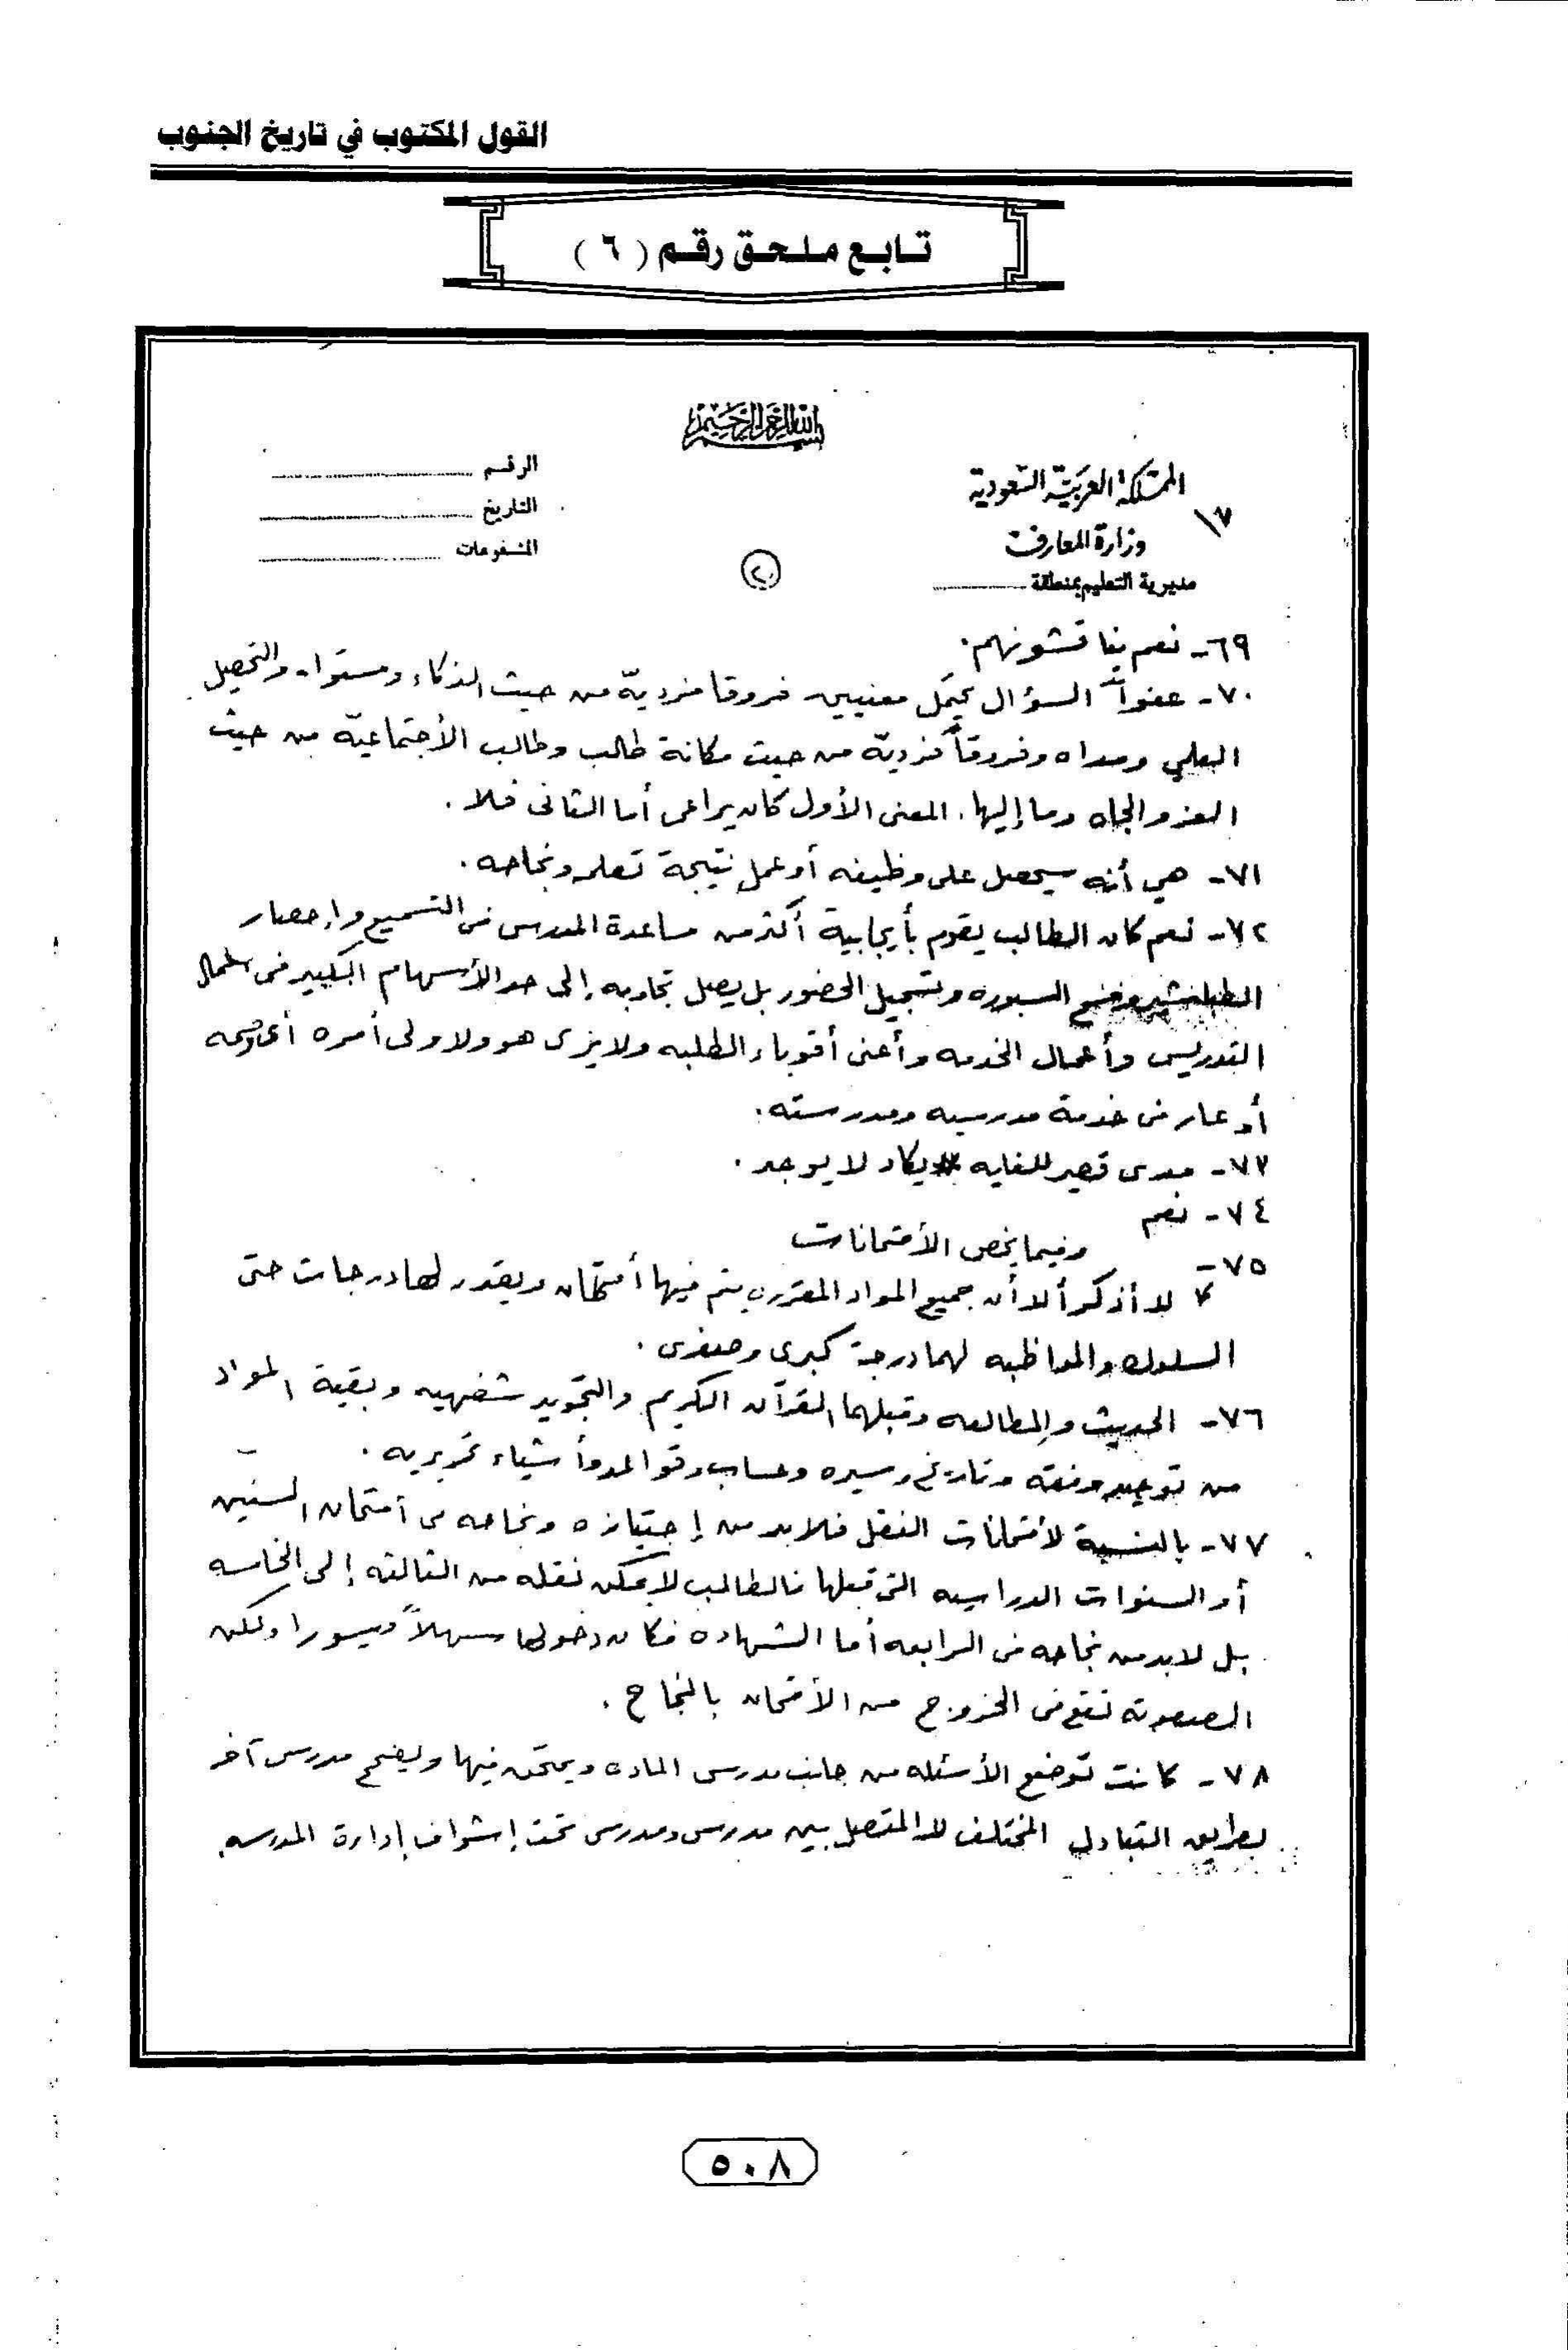 القول المكتوب في تاريخ الجنوب
تابع ملحق رقم (٦)
بسم الله الرحمن الرحيم
المملكة العربية السعودية
وزارة المعارف
مديرية التعليم بمنطقة
الرقم
التاريخ
المشفوعات
١٧
٢٠
٦٩- نعم يناقشونهم.
٧٠- عفواً السؤال يحتمل معنيين فروقا فردية من حيث الذكاء ومستواه والتحصيل
العلمي ومداه وفروقاً فردية من حيث مكانة طالب وطالب الأجتماعية من حيث
العز والجاه وما إليها. المعنى الأول كان يراعى أما الثاني فلا.
٧١- هي أنه سيحصل على وظيفه أو عمل نتيجة تعلمه ونجاحه.
٧٢- نعم كان الطالب يقوم بأيجابية أكثر من مساعدة المدرس في التسميع وإحصار
الطباشير ومسح السبوره وتسجيل الحضور بل يصل تجاوبه إلى حد الأسهام الكبير في أعمال
التدريس وأعمال الخدمه وأعنى أقوياء الطلبه ولا يرى هو ولا ولى أمره أى
أو عار في خدمة مدرسيه ومدرسته.
٧٣- مدى قصير للغايه يكاد لا يوجد.
٧٤- نعم
وفيما يخص الأمتحانات
٧٥- لا أذكر ألا أن جميع المواد المقرره يتم فيها أمتحان ويقدر لها درجات حتى
السلوك والمواظبه لهما درجة كبرى وصغرى.
٧٦- الحديث والمطالعه وقبلهما القرآن الكريم والتجويد شفهيه وبقية المواد
من توحيد وفقه وتاريخ وسيره وحساب وقواعد وأشياء تحريريه.
٧٧- بالنسبة لأمتحانات النقل فلا بد من إجتيازه ونجاحه في أمتحان السنين
أو السنوات الدراسيه التى قبلها فالطالب لا يمكن نقله من الثالثه إلى الخامسه
بل لا بد من نجاحه في الرابعه أما الشهاده فكان دخولها سهلاً ميسورا ولكن
الصعوبه تقع في الخروج من الأمتحان بالنجاح.
٧٨- كانت توضع الأسئله من جانب مدرس الماده ويمتحن فيها ويصحح مدرس آخر
بطريق التبادل المختلف لا المتصل بين مدرس ومدرس تحت إشراف إدارة المدرسه.
٥٠٨